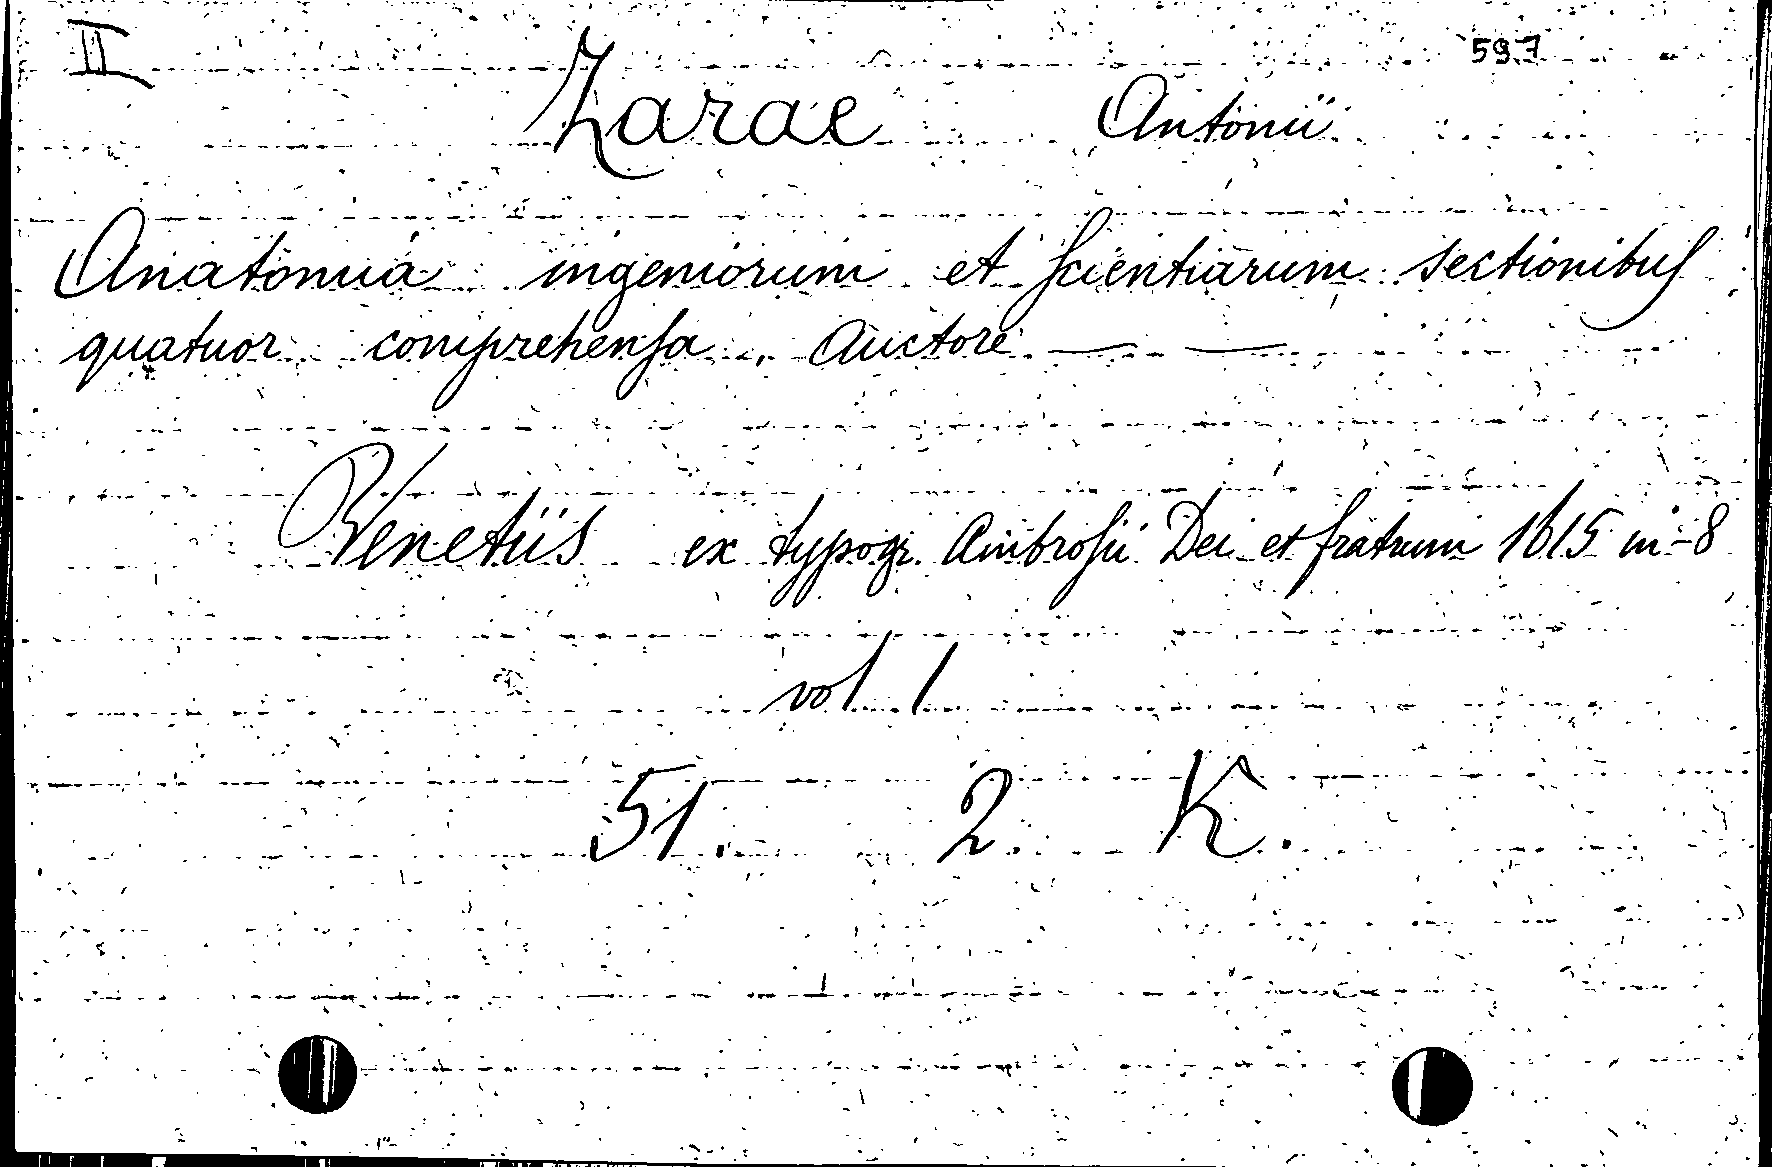 II 597
Zarae Antonii
Anatomia ingeniorum et scientiarum sectionibus
quatuor comprehensa. Auctore — —
Venetiis ex typogr. Ambrosii Dei et fratrum 1615 in-8
vol 1
51. 2. K.